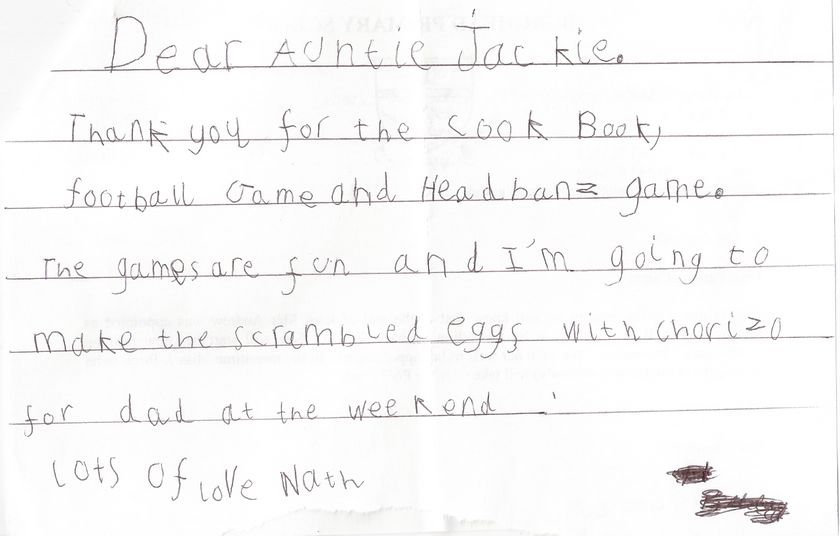 Dear Auntie Jackie.
Thank you for the cook Book,
football Game and Headbanz game.
The games are fun and I'm going to
make the scrambled eggs with chorizo
for dad at the weekend
Lots Of love Nath